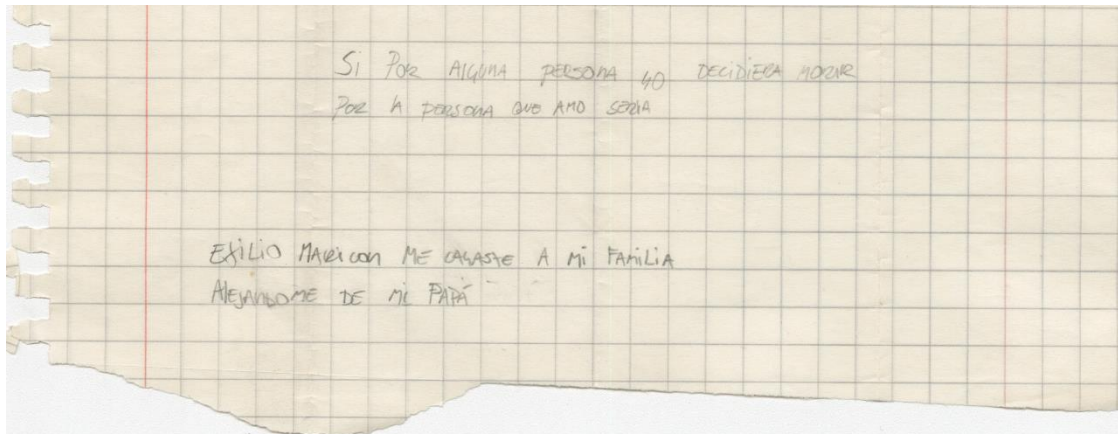 Si POR AlGUNA PERSONA YO DECIDIERA MORIR
POR lA PERSONA QUE AMO SERIA
EXiLiO MARicon ME CAGASTE A Mi FAMiLiA
AlEJANDOME DE Mi PAPÁ